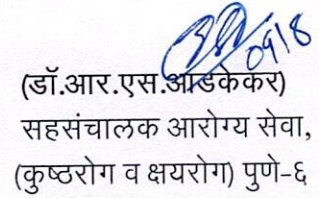 (डॉ.आर.एस.आडकेकर)
सहसंचालक आरोग्य सेवा,
(कुष्ठरोग व क्षयरोग) पुणे-६